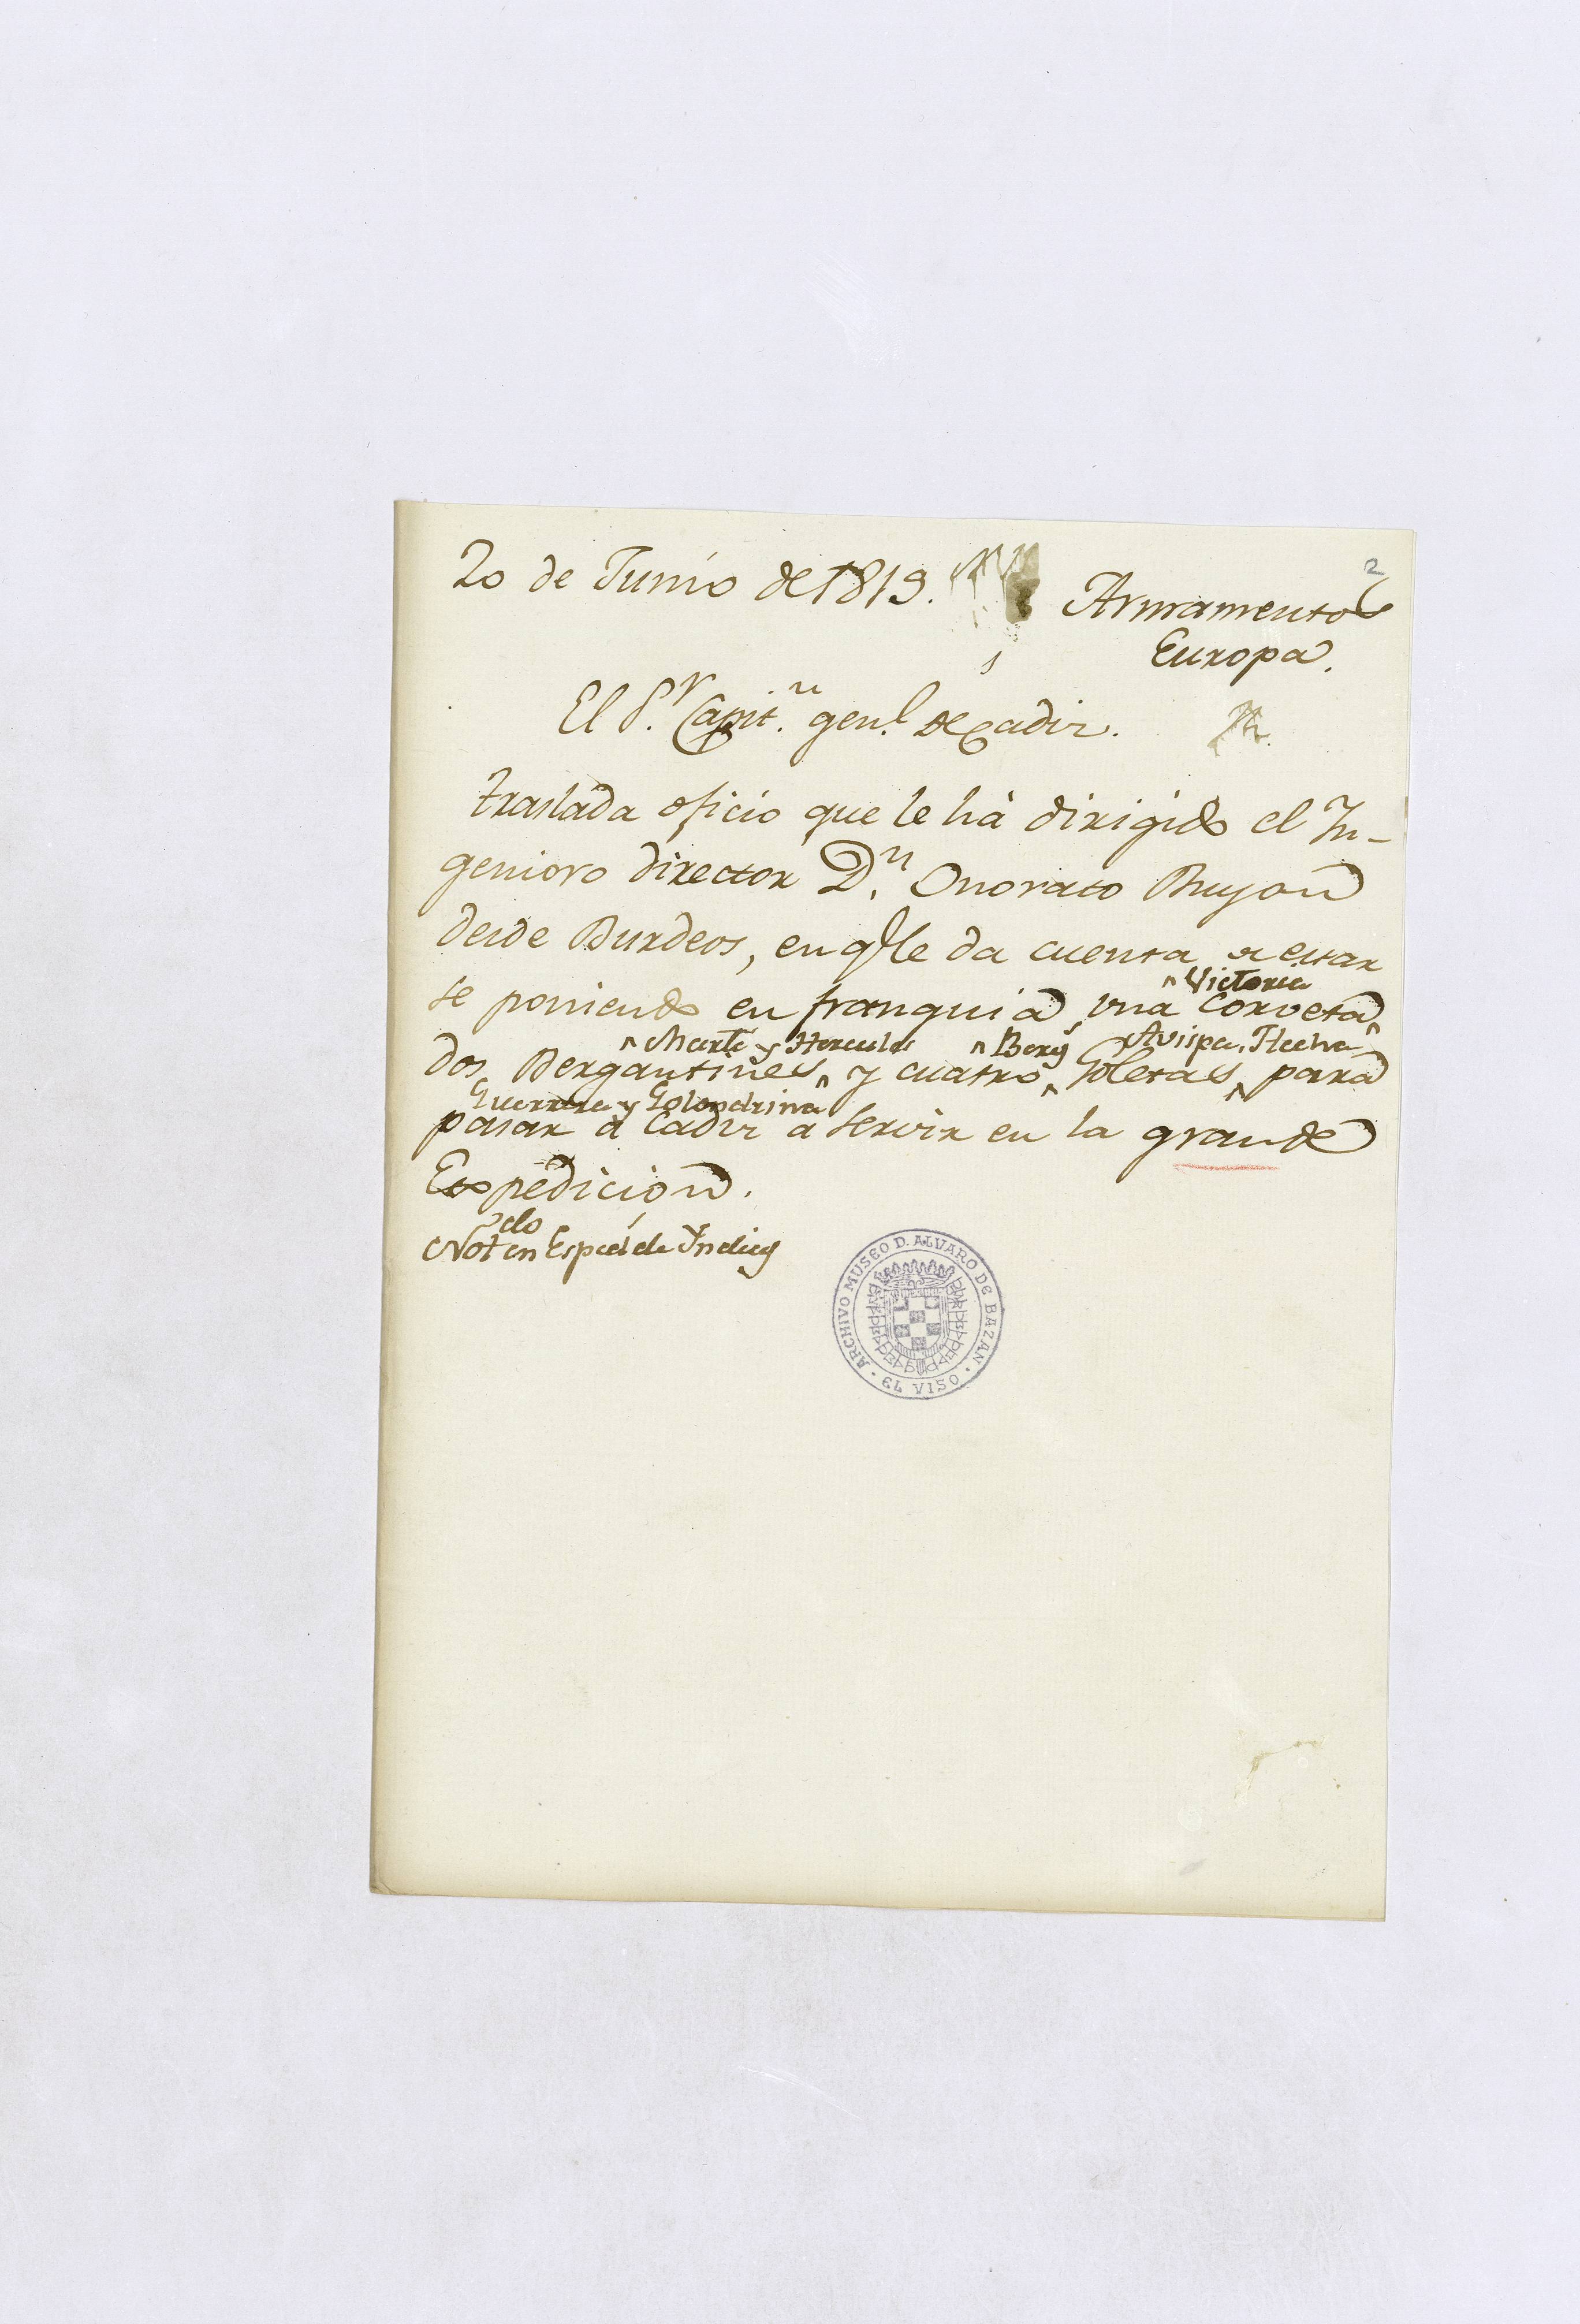 2
20 de Junio de 1819.
Armamentos
Europa.
1
El S.r Capit.n gen.l de Cadiz.
traslada oficio que le há dirigido el In-
geniero director D.n Onorato Buyon
desde Burdeos, en q.e le da cuenta de estar
^ Victoria
se poniendo en franquia una Corveta^
^ Marte y Hercules ^ Berg.s Avispa, Flecha
dos Bergantines^ y cuatro^ Goletas^ para
Guerrera y Golondrina^
pasar á Cadiz á servir en la grande
Expedicion.
Notdo en Espedte de Yndias
ARCHIVO MUSEO D. ALVARO DE BAZAN · EL VISO ·